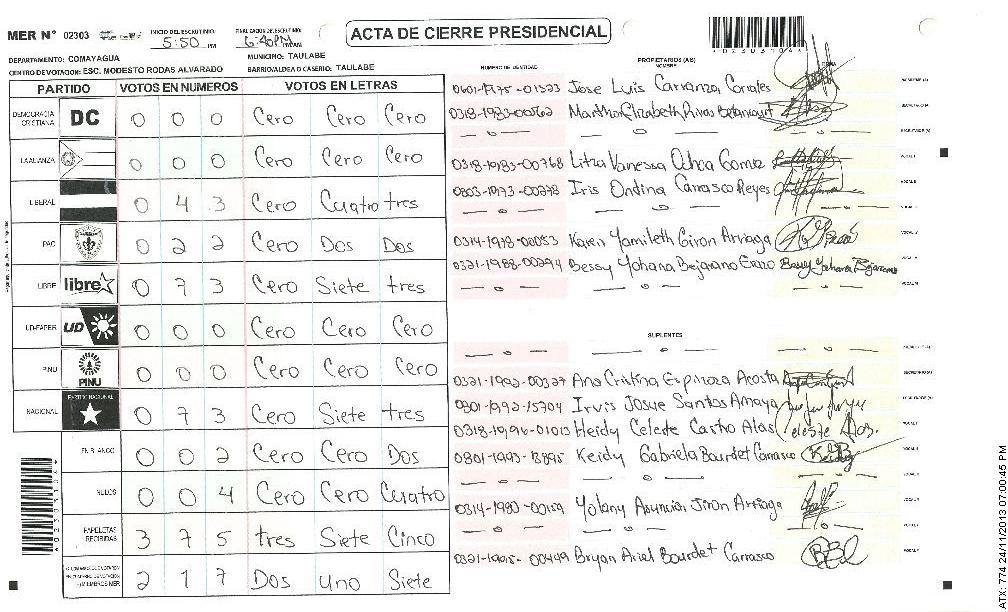 MER N° 02303
INICIO DEL ESCRUTINIO:
5:50 PM
FINALIZACION DE ESCRUTINIO:
6:40PM
ACTA DE CIERRE PRESIDENCIAL
DEPARTAMENTO: COMAYAGUA
MUNICIPIO: TAULABE
CENTRO DE VOTACION: ESC. MODESTO RODAS ALVARADO
BARRIO/ALDEA O CASERIO: TAULABE
PARTIDO VOTOS EN NUMEROS VOTOS EN LETRAS
DEMOCRACIA CRISTIANA DC 0 0 0 Cero Cero Cero
LA ALIANZA 0 0 0 Cero Cero Cero
LIBERAL 0 4 3 Cero Cuatro tres
PAC 0 2 2 Cero Dos Dos
LIBRE libre 0 7 3 Cero Siete tres
UD-FAPER UD 0 0 0 Cero Cero Cero
PINU PINU 0 0 0 Cero Cero Cero
NACIONAL PARTIDO NACIONAL 0 7 3 Cero Siete tres
EN BLANCO 0 0 2 Cero Cero Dos
NULOS 0 0 4 Cero Cero Cuatro
PAPELETAS RECIBIDAS 3 7 5 tres Siete Cinco
2 1 7 Dos uno Siete
NUMERO DE IDENTIDAD
PROPIETARIOS (AS)
NOMBRE
FIRMA
0601-1975-01523 Jose Luis Carranza Corrales
0318-1983-00562 Martha Elizabeth Rivas Betancourt
0318-1983-00768 Litza Vanessa Ochoa Gomez
0803-1973-00278 Iris Ondina Carrasco Reyes
0314-1978-00053 Karen Yamileth Giron Arriaga
0321-1988-00294 Bessy Yohana Bejarano Erazo
SUPLENTES
0321-1992-00327 Ana Cristina Espinoza Acosta
0801-1992-15704 Irvis Josue Santos Amaya
0318-1996-01013 Heidy Celeste Castro Alas
0801-1993-13895 Keidy Gabriela Bourdet Carrasco
0314-1980-00159 Yolany Asuncion Jiron Arriaga
0321-1995-00449 Bryan Ariel Bourdet Carrasco
ATX: 774 24/11/2013 07:00:45 PM